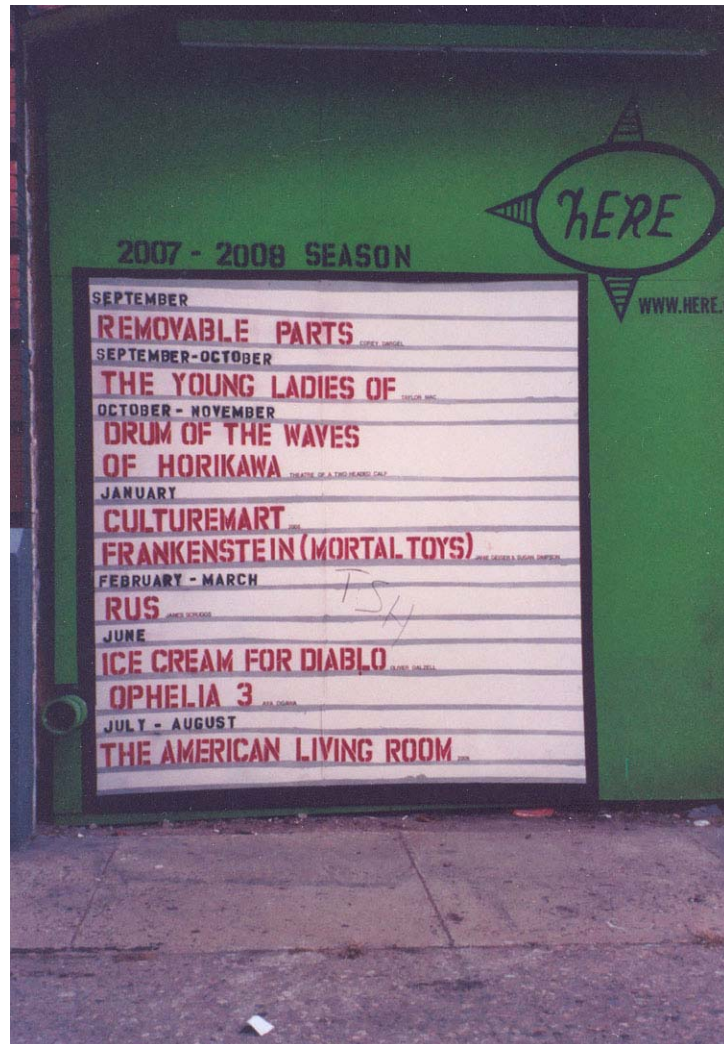 hERE
2007 - 2008 SEASON
WWW.HERE.
SEPTEMBER
REMOVABLE PARTS COREY DARGEL
SEPTEMBER-OCTOBER
THE YOUNG LADIES OF TAYLOR MAC
OCTOBER - NOVEMBER
DRUM OF THE WAVES
OF HORIKAWA THEATRE OF A TWO-HEADED CALF
JANUARY
CULTUREMART 2008
FRANKENSTEIN (MORTAL TOYS) JANIE GEISER & SUSAN SIMPSON
FEBRUARY - MARCH
TSH
RUS JAMES SCRUGGS
JUNE
ICE CREAM FOR DIABLO OLIVER DALZELL
OPHELIA 3 AYA OGAWA
JULY - AUGUST
THE AMERICAN LIVING ROOM 2008